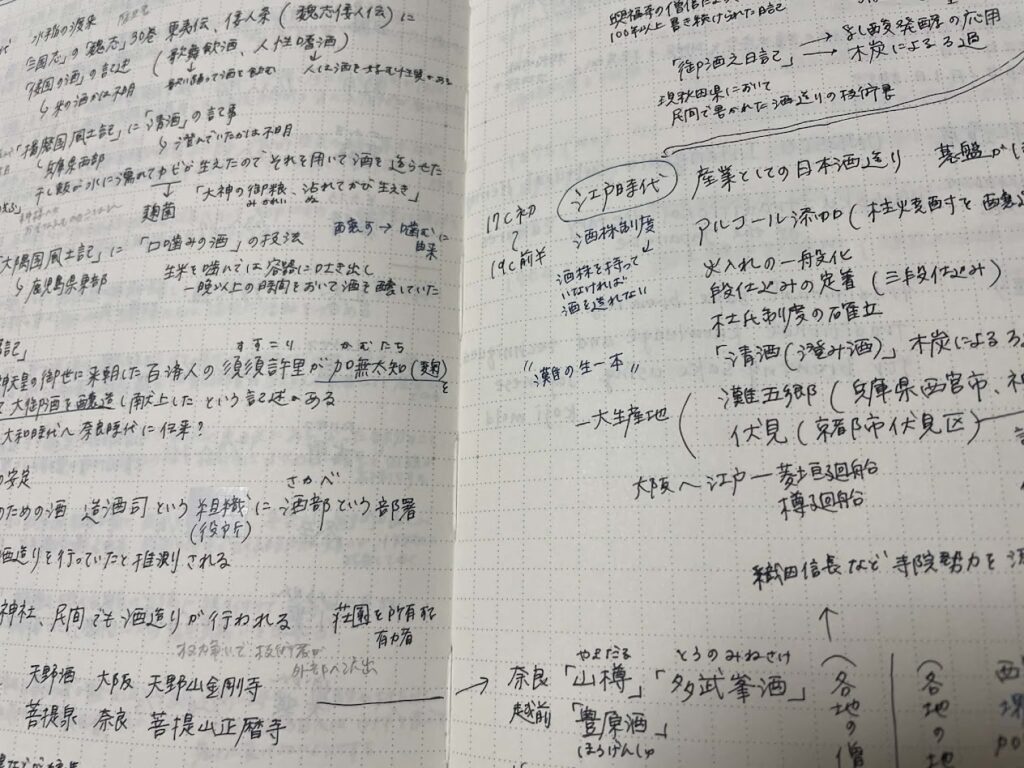 水稲の渡来
「三国志」の「魏志」30巻 東夷伝、倭人条(魏志倭人伝)に
「倭国の酒」の記述 (歌舞飲酒、人性嗜酒)
↳ 米の酒かは不明 歌い踊って酒を飲む 人は酒を
「播磨国風土記」に「清酒」の記事
↳ 兵庫県西部 ↳ 澄んでいたかは不明
干し飯が水に濡れてカビが生えたので それを用いて酒を造らせた
↓ 「大神の御粮、沾れてかび生えき」
麹菌 みかれい ぬ
「大隅国風土記」に「口噛みの酒」の技法 醸す→噛むに
由来
↳ 鹿児島県東部 生米を噛んでは容器に吐き出し
一晩以上の時間をおいて酒を醸していた
すすこり かむたち
天皇の御世に来朝した百済人の須須許里が加無太知(麹)を
て大御酒を醸造し献上したという記述がある
大和時代へ奈良時代に伝来?
のための酒 造酒司という組織に 酒部という部署
さかべ
(役所)
酒造りを行っていたと推測される
神社、民間でも酒造りが行われる 荘園を所有する
有力者
外部へ流出
天野酒 大阪 天野山金剛寺
菩提泉 奈良 菩提山正暦寺
100年以上書き続けられた日記
「御酒之日記」→ 乳酸発酵の応用
→ 木炭によるろ過
現秋田県において
民間で書かれた酒造りの技術書
17C初
〜
19C前半
江戸時代 産業としての日本酒造り 基盤が
酒株制度
↓
酒株を持って
いなければ
酒を造れない
アルコール添加(柱焼酎を醸
火入れの一般化
段仕込みの定着(三段仕込み)
杜氏制度の確立
「清酒(澄み酒)」木炭によるろ
"灘の生一本"
一大生産地 ( 灘五郷(兵庫県西宮市、神
伏見(京都市伏見区)
大阪へ江戸ー菱垣廻船
樽廻船
織田信長など寺院勢力を
↑
→ 奈良「山樽」「多武峯酒」
やまだる とうのみねさけ
越前「豊原酒」
ほうげんしゅ
(各地の僧
(各地の地